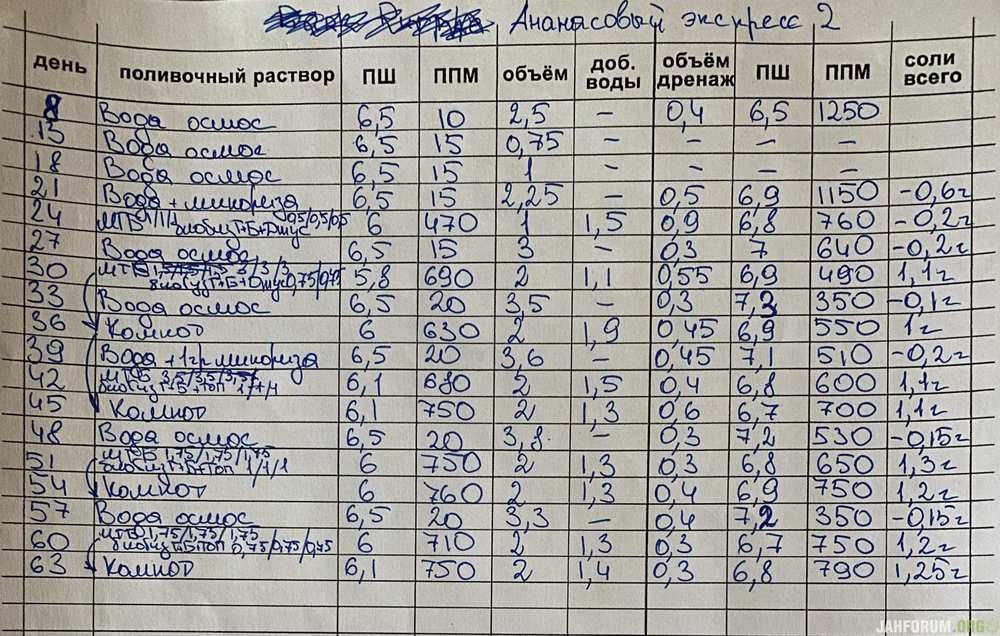 Ананасовый экспресс 2
день поливочный раствор ПШ ППМ объём доб. воды объём дренаж ПШ ППМ соли всего
8 Вода осмос 6,5 10 2,5 – 0,4 6,5 1250
13 Вода осмос 6,5 15 0,75 – – – –
18 Вода осмос 6,5 15 1 – – – –
21 Вода + микориза 6,5 15 2,25 – 0,5 6,9 1150 -0,6г
24 МТБ 1/1/1 0,5/0,5/0,5 6 470 1 1,5 0,9 6,8 760 -0,2г
27 Вода осмос 6,5 15 3 – 0,3 7 640 -0,2г
30 МТБ 3/3/3 0,75/0,75 5,8 690 2 1,1 0,55 6,9 490 1,1г
33 Вода осмос 6,5 20 3,5 – 0,3 7,3 350 -0,1г
36 Компот 6 630 2 1,9 0,45 6,9 550 1г
39 Вода + 1гр. микориза 6,5 20 3,6 – 0,45 7,1 510 -0,2г
42 МТБ 3,5/3,5/3,5 1/1/1 6,1 680 2 1,5 0,4 6,8 600 1,1г
45 Компот 6,1 750 2 1,3 0,6 6,7 700 1,1г
48 Вода осмос 6,5 20 3,8 – 0,3 7,2 530 -0,15г
51 МТБ 1,75/1,75/1,75 1/1/1 6 750 2 1,3 0,3 6,8 650 1,3г
54 Компот 6 760 2 1,3 0,4 6,9 750 1,2г
57 Вода осмос 6,5 20 3,3 – 0,4 7,2 350 -0,15г
60 МТБ 1,75/1,75/1,75 0,75/0,75/0,75 6 710 2 1,3 0,3 6,7 750 1,2г
63 Компот 6,1 750 2 1,4 0,3 6,8 790 1,25г
JAHFORUM.ORG